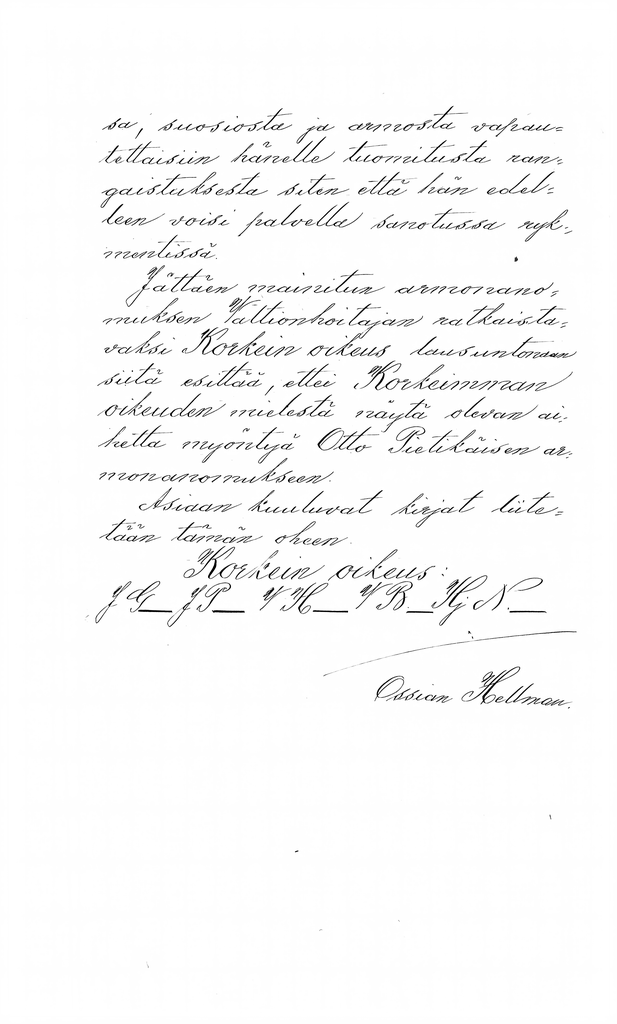 sa, suosiosta ja armosta vapau=
tettaisiin hänelle tuomitusta ran=
gaistuksesta siten että hän edel=
leen voisi palvella sanotussa ryk=
mentissä.
Jättäen mainitun armonano=
muksen Valtionhoitajan ratkaista=
vaksi Korkein oikeus lausuntonaan
siitä esittää, ettei Korkeimman
oikeuden mielestä näytä olevan ai=
hetta myöntyä Otto Pietikäisen ar=
monanomukseen.
Asiaan kuuluvat kirjat liite=
tään tämän oheen.
Korkein oikeus:
J G__ J P__ V H__ V B__ Hj N.__
Ossian Hellman.